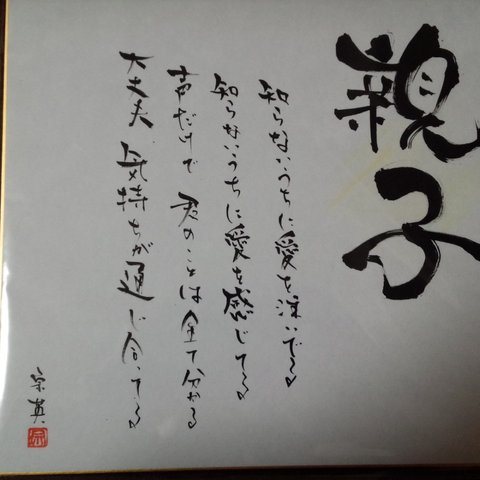 親子
知らないうちに愛を注いでる
知らないうちに愛を感じてる
声だけで 君のことは全て分かる
大丈夫 気持ちが通じ合ってる